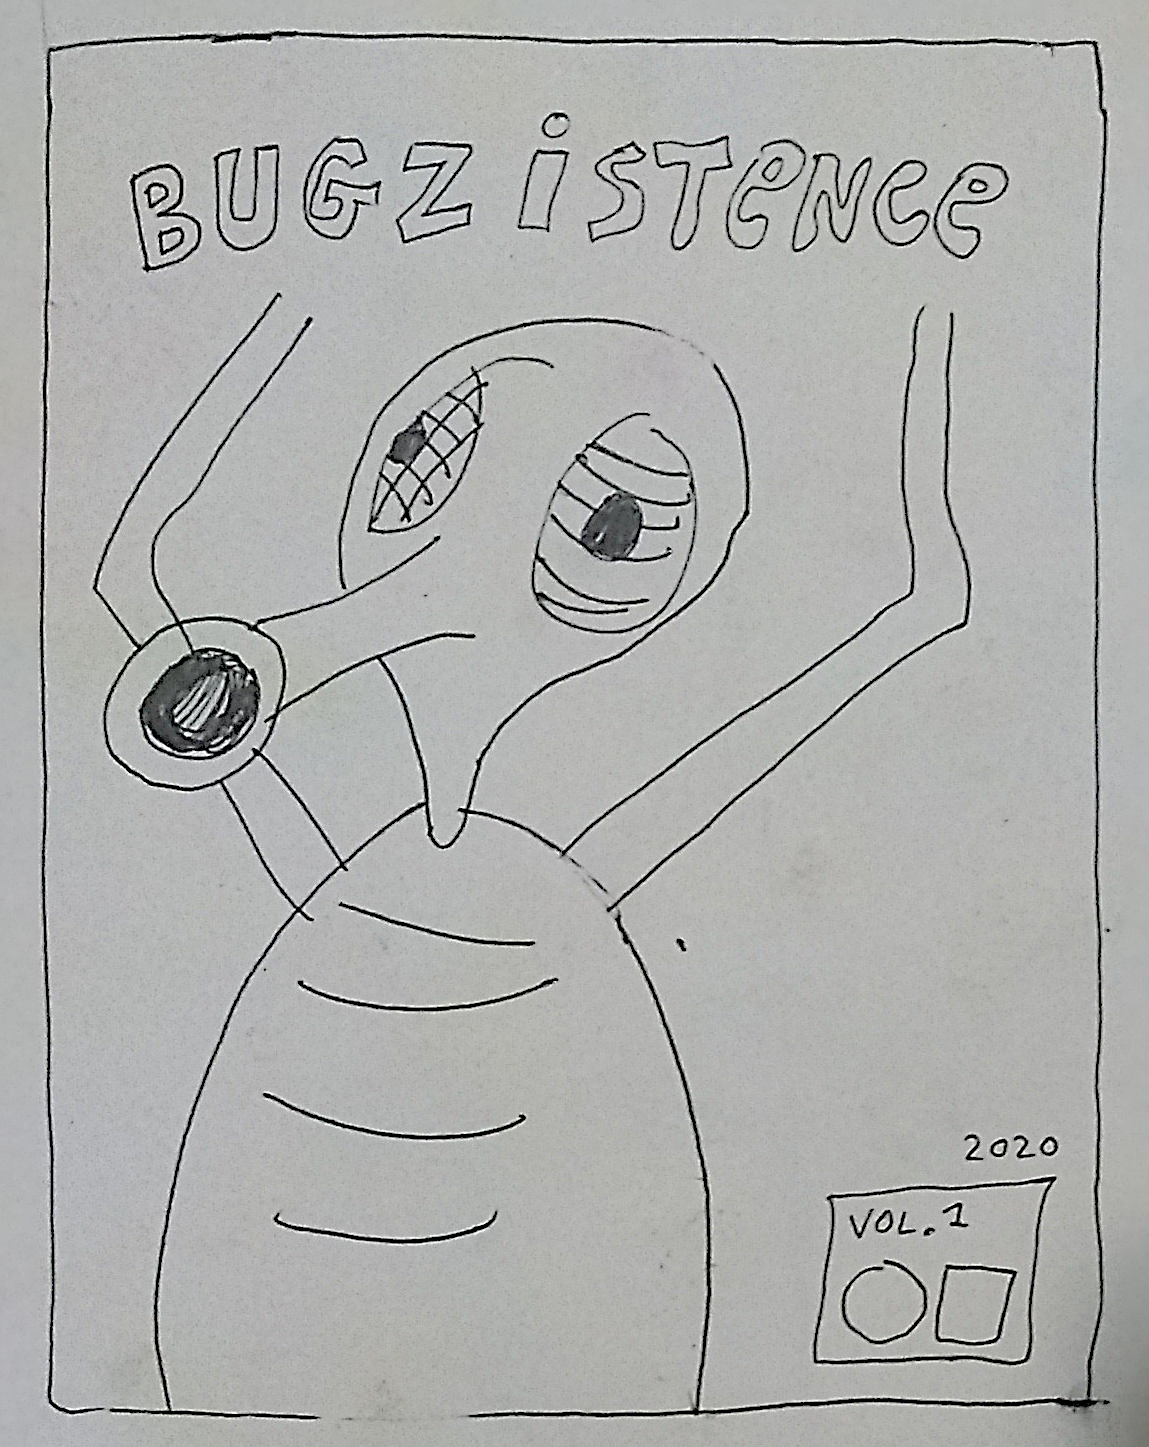 BUGZ iSTeNCe
2020
VOL.1